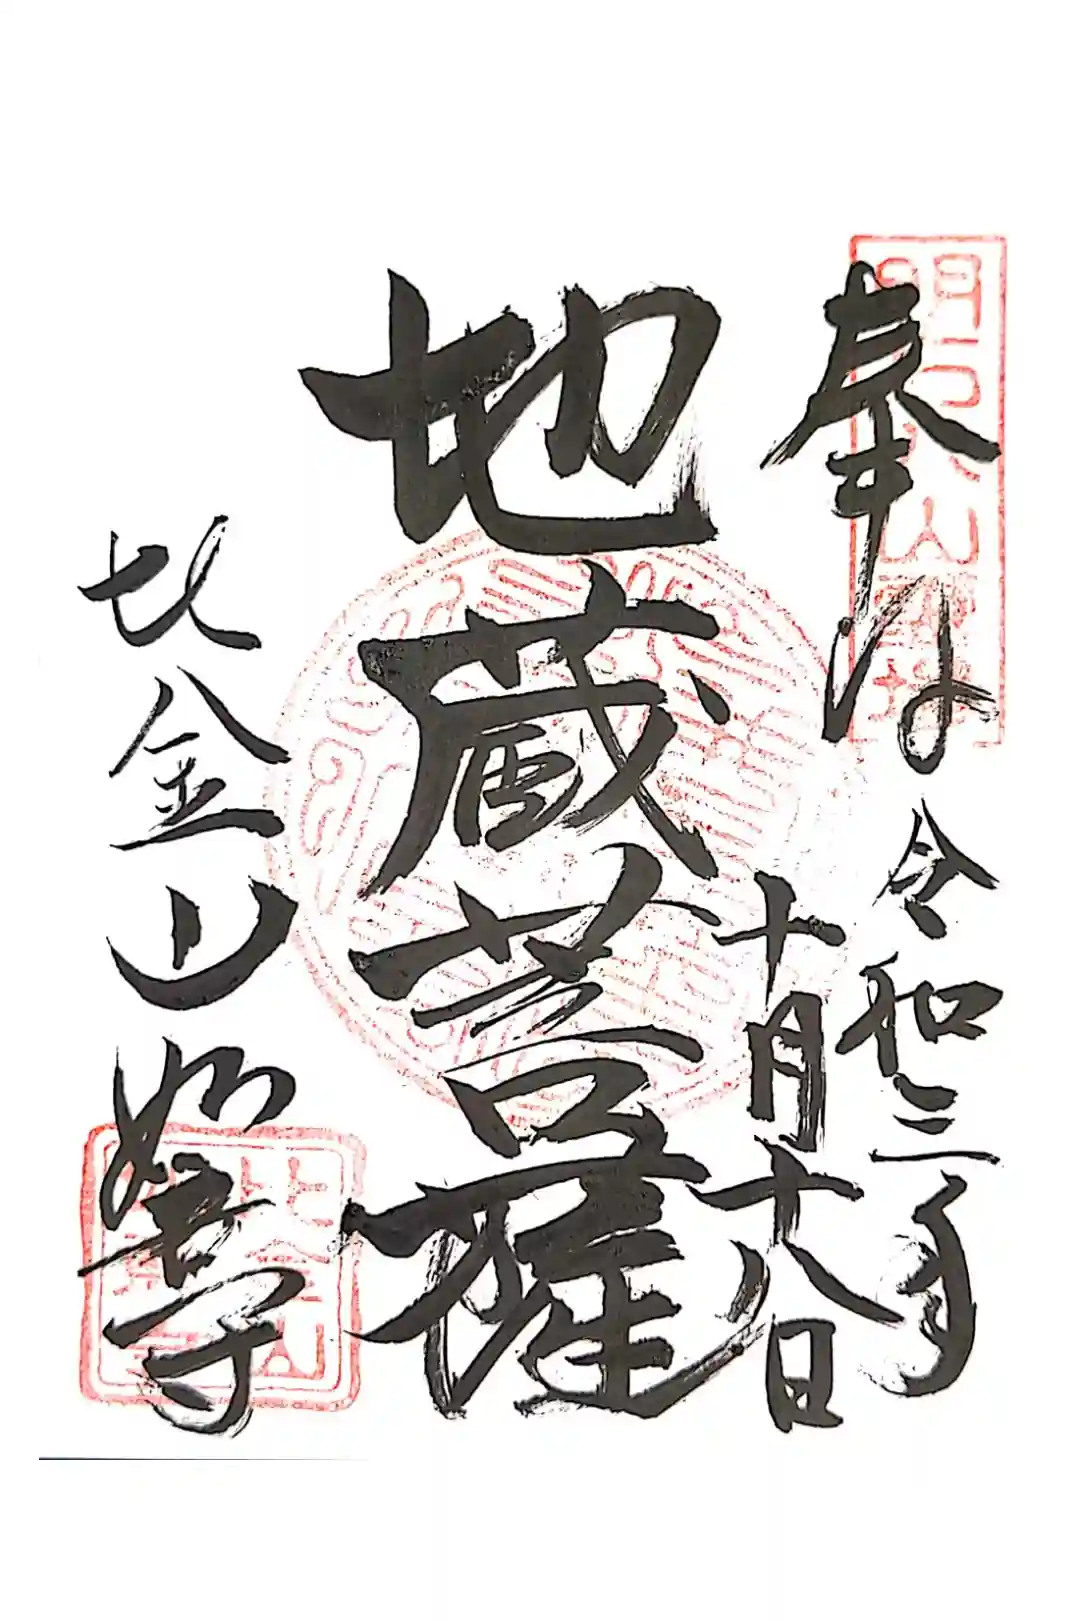 奉拝 令和三年
十月十八日
地蔵菩薩
比金山如意寺